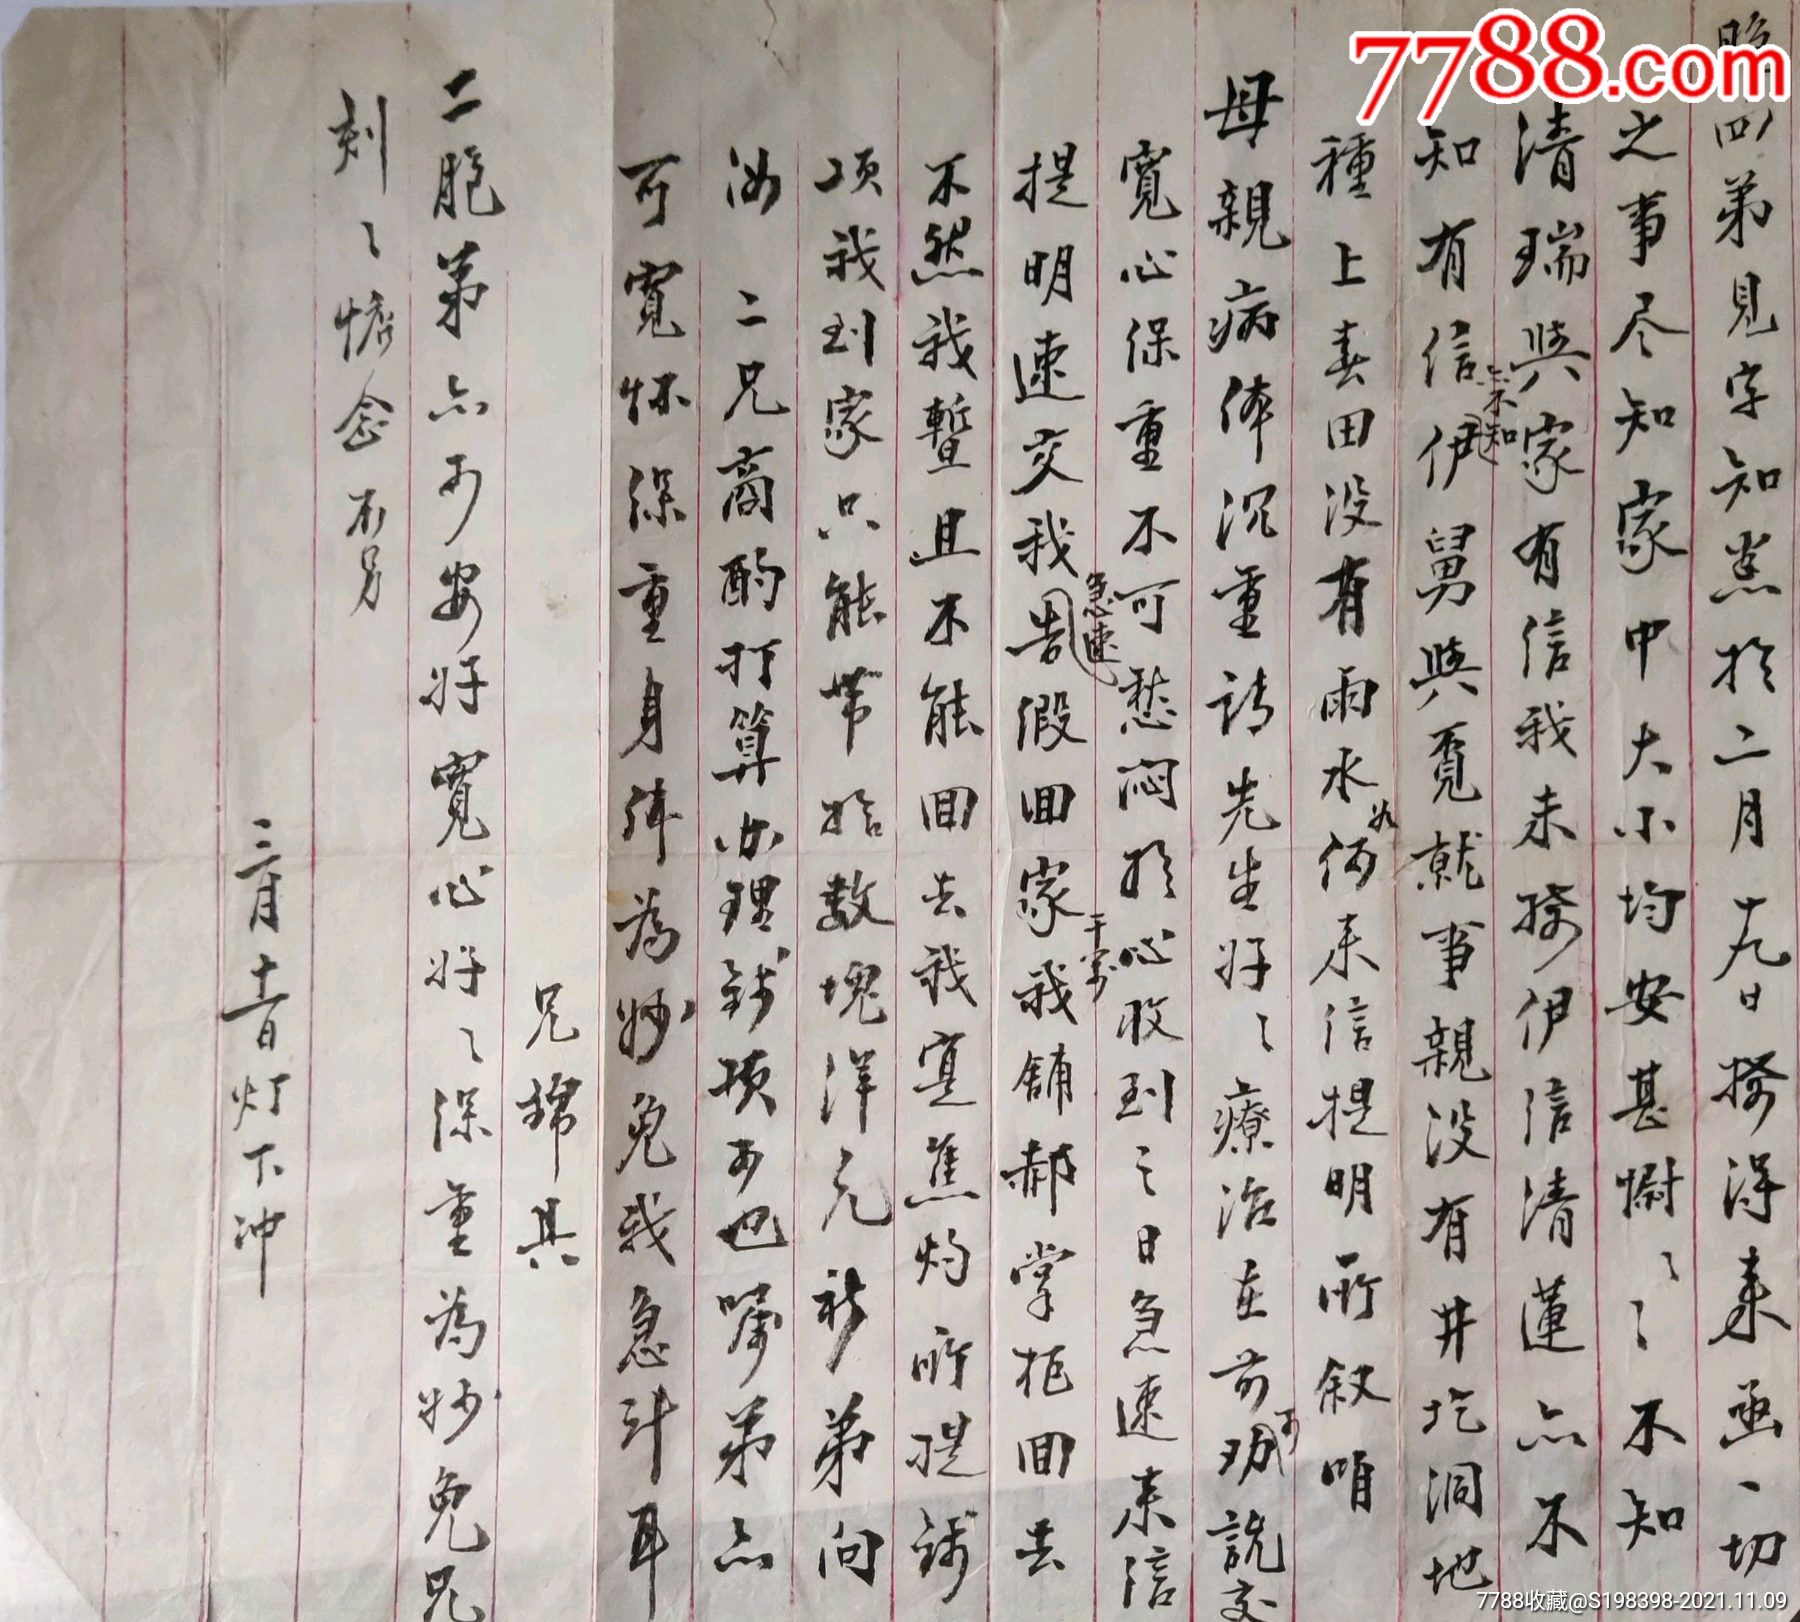 7788.com
弟見字知悉於二月十九日接得来函一切
之事尽知家中大小均安甚慰〻〻不知
清瑞與家有信我未接伊信清蓮亦不
知有信未知伊舅與覓就事親没有井圪洞地
種上春田没有雨水如何来信提明所敘咱
母親病体沉重請先生好〻療治在前可說交
寬心保重不可愁闷於心收到之日急速来信
提明速交我急速告假回家我舖郝掌柜回去
不然我暫且不能回去我寔焦灼所提錢
项我到家只能带拾数塊洋元祈弟向
汝二兄商酌打算办理錢項可也囑弟亦
可寬怀保重身体為妙免我急計耳
兄錦具
二胞弟亦可安好寬心好〻保重為妙免兄
刻〻惦念不另
三月十一日灯下冲
7788收藏@S198398-2021.11.09